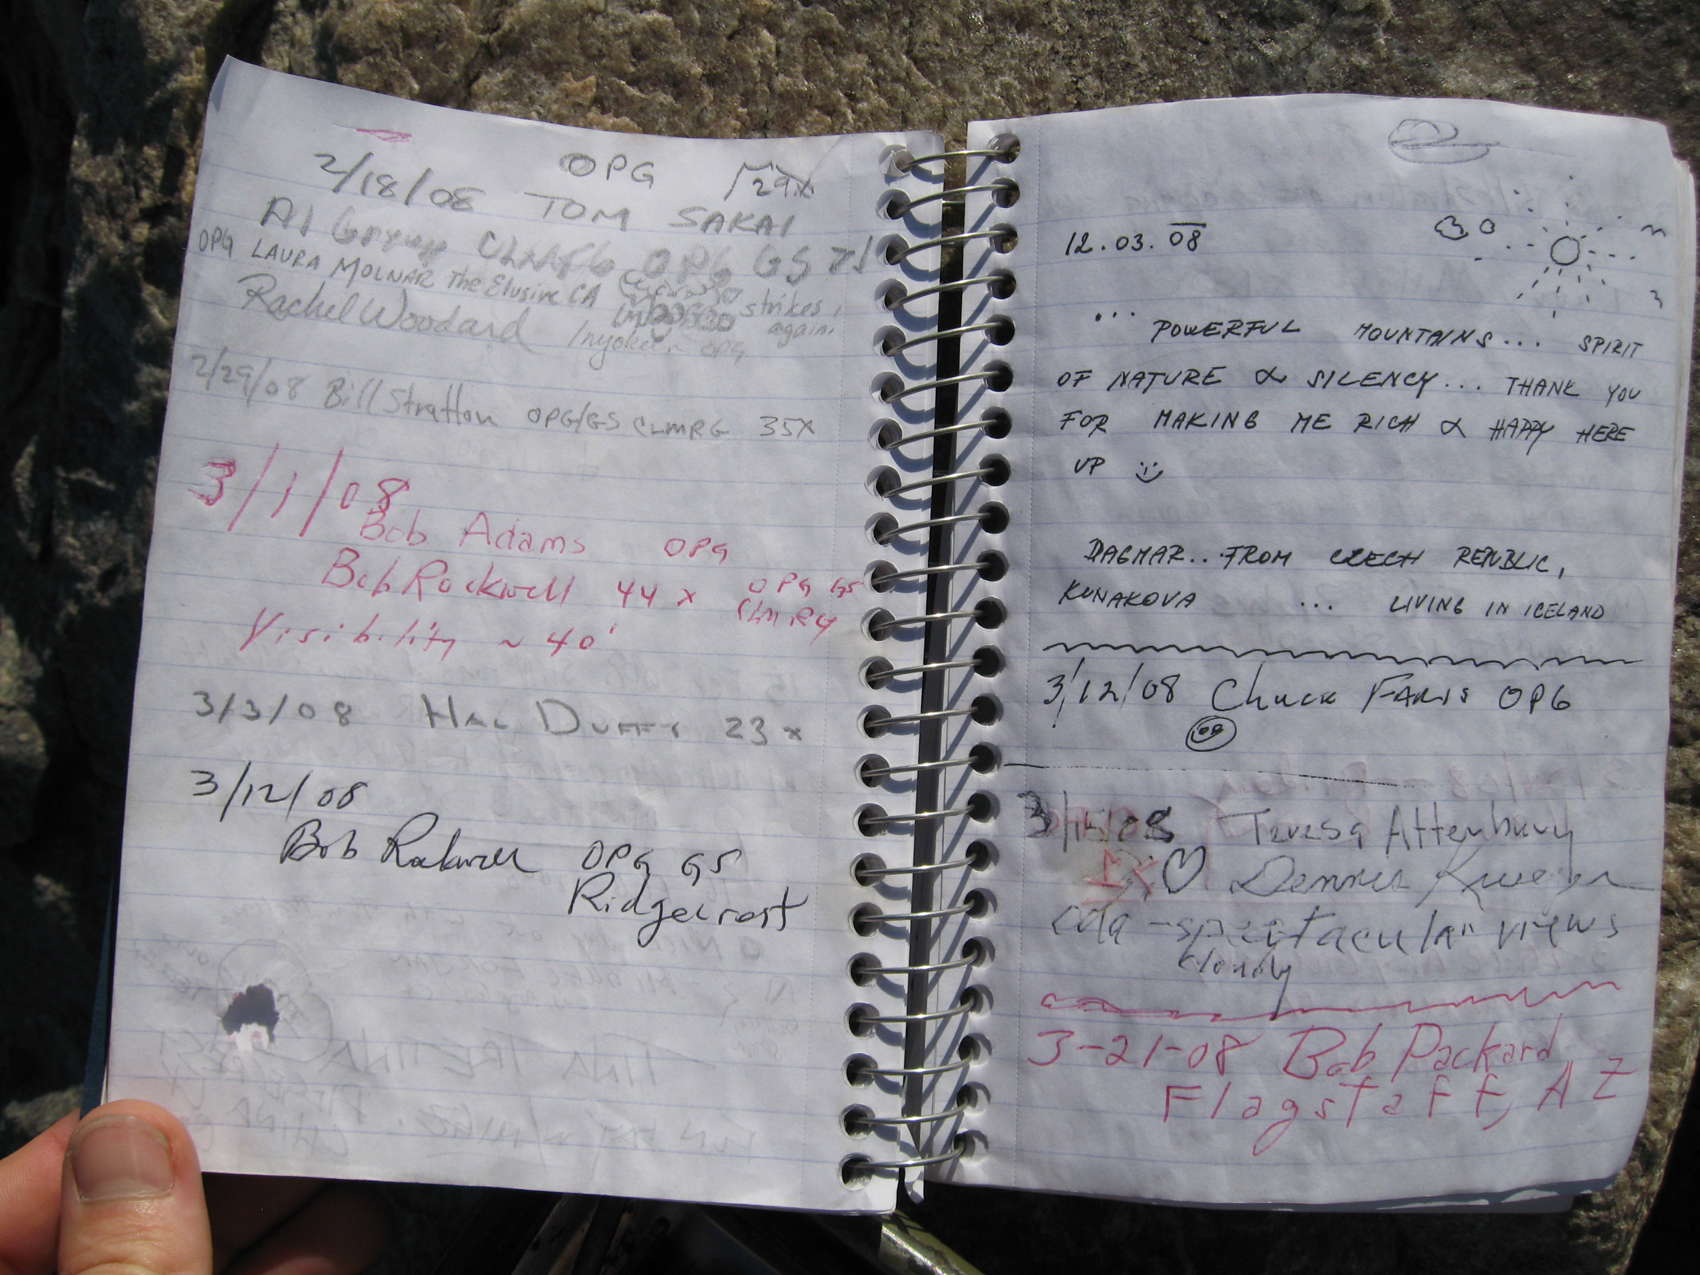 OPG 29x
2/18/08 TOM SAKAI
Al CLMRG OPG GS 71
OPG LAURA MOLNAR The Elusive CA strikes
again.
Rachel Woodard Inyokern OPG
2/29/08 Bill Stratton OPG/GS CLMRG 35X
3/1/08
Bob Adams OPG
Bob Rockwell 44x OPG GS
CLMRG
Visibility ~ 40'
3/3/08 HAL DUFFY 23x
3/12/08
Bob Rockwell OPG GS
Ridgecrest
12.03.08
... POWERFUL MOUNTAINS... SPIRIT
OF NATURE & SILENCY... THANK YOU
FOR MAKING ME RICH & HAPPY HERE
UP
DAGMAR... FROM CZECH REPUBLIC,
KUNAKOVA ... LIVING IN ICELAND
3/12/08 Chuck FARIS OPG
Teresa Attenbury
1x Dennis Krueger
spectacular views
cloudy
3-21-08 Bob Packard
Flagstaff, AZ